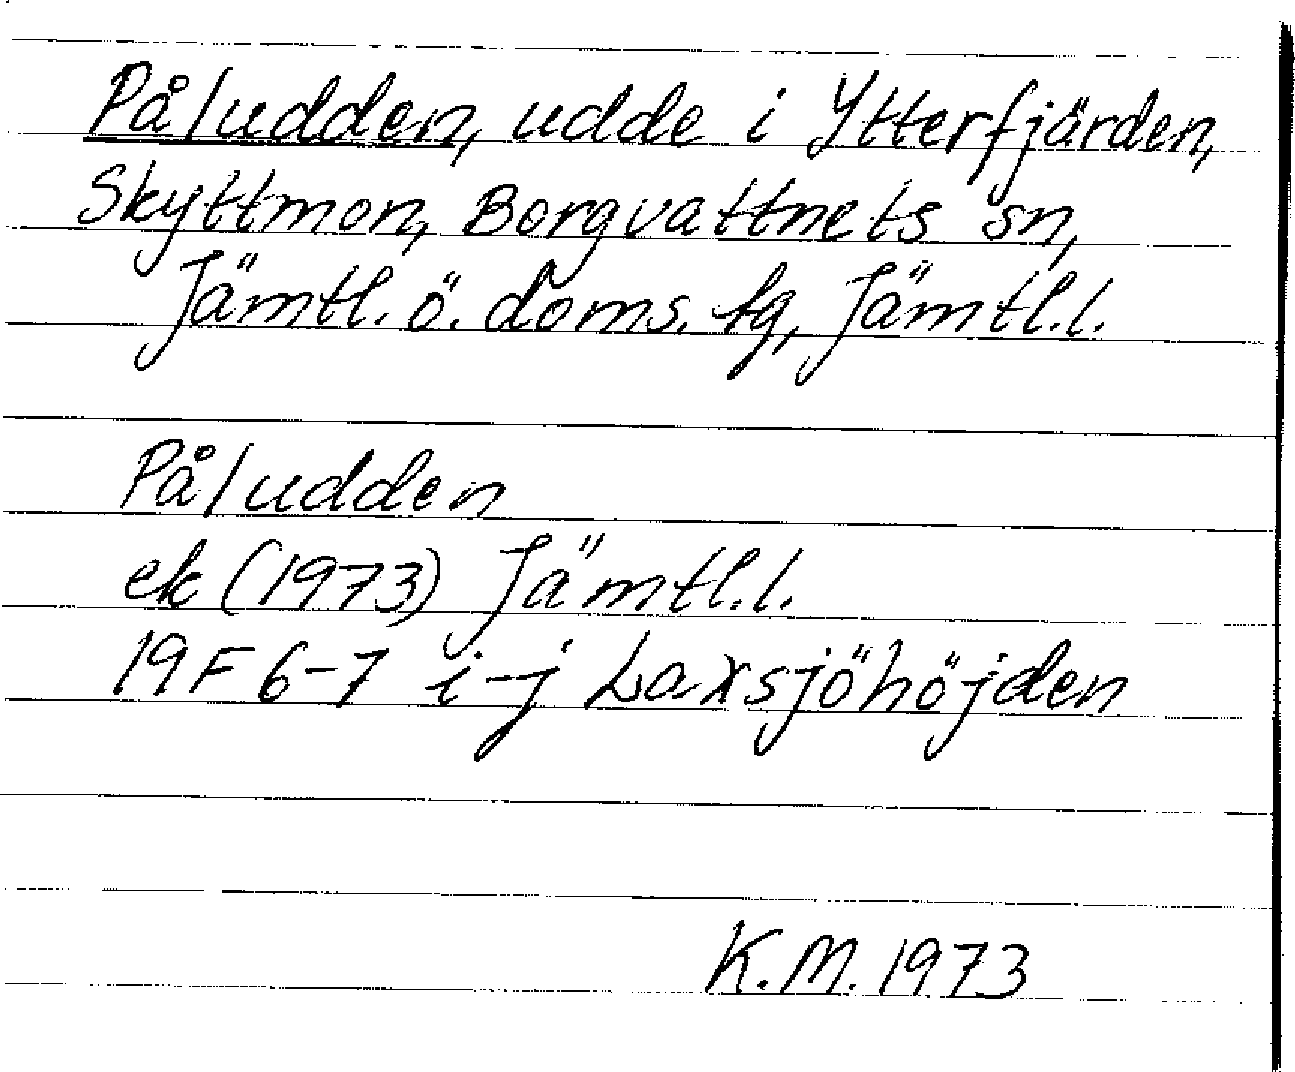 Påludden, udde i Ytterfjärden,
Skyttmon, Borgvattnets sn,
Jämtl. ö. doms. tg, Jämtl.l.
Påludden
ek (1973) Jämtl.l.
19F 6-7 i-j Laxsjöhöjden
K.M. 1973